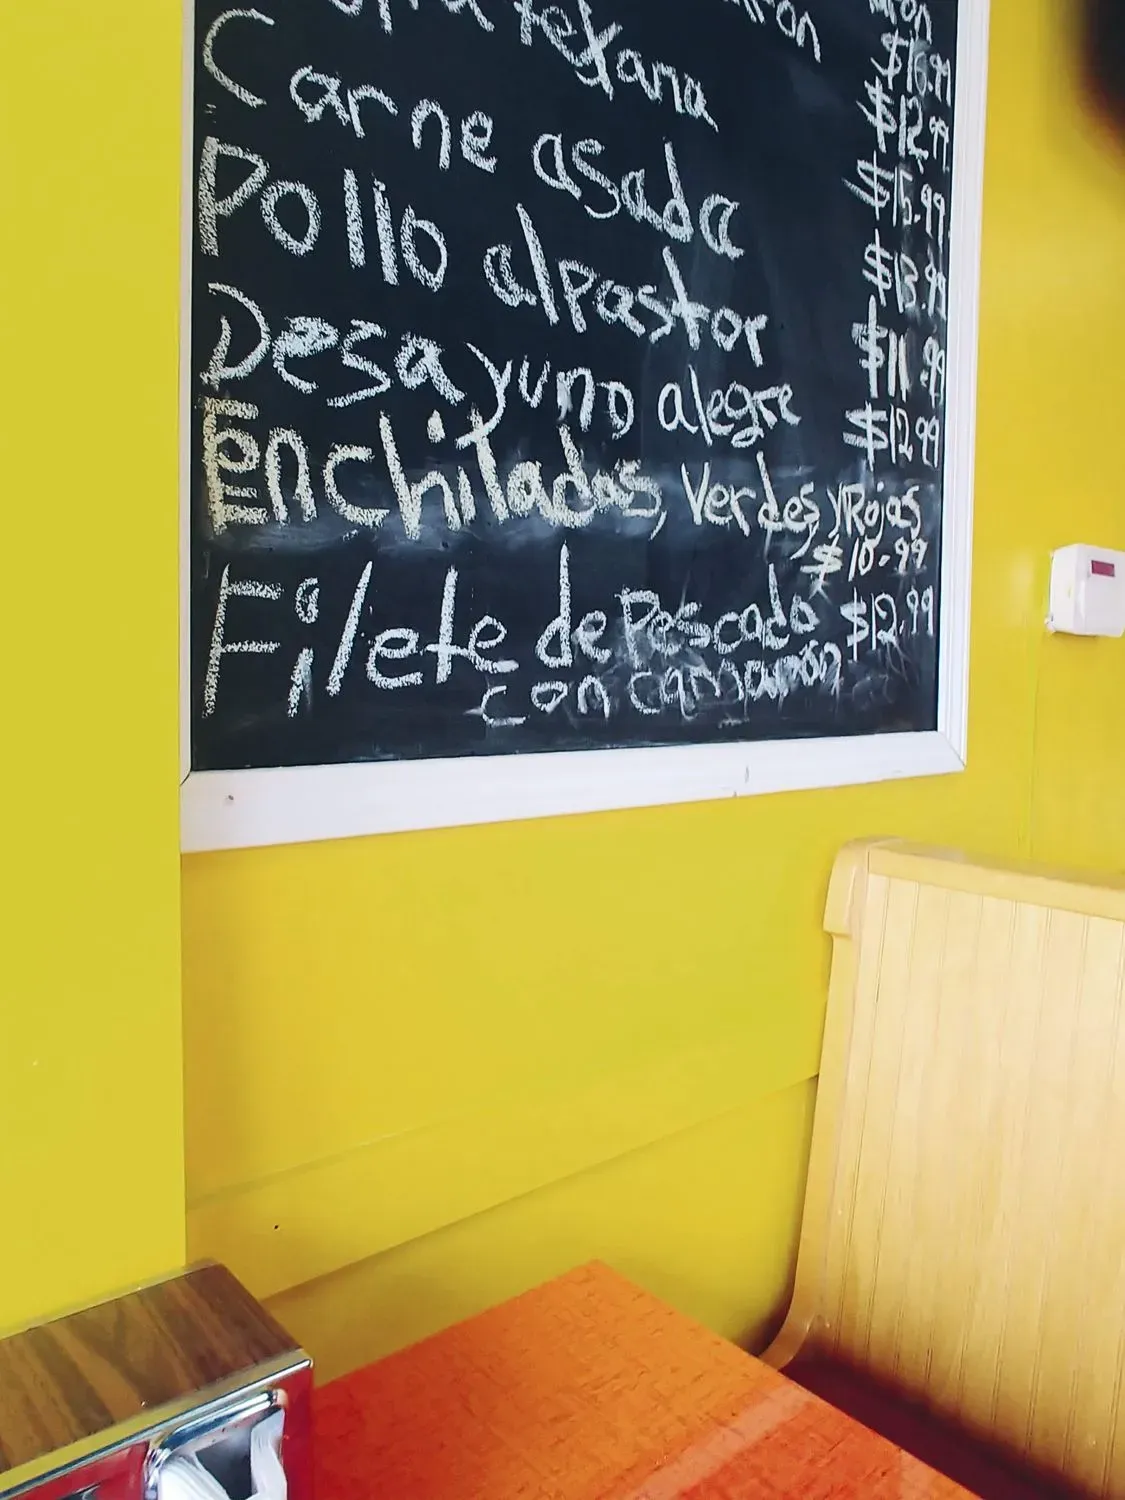 texana
$12.99
Carne asada $15.99
Pollo alpastor $13.99
Desayuno alegre $11.99
$12.99
Enchiladas, Verdes, y Rojas
$10.99
Filete de Pescado $12.99
con camaron